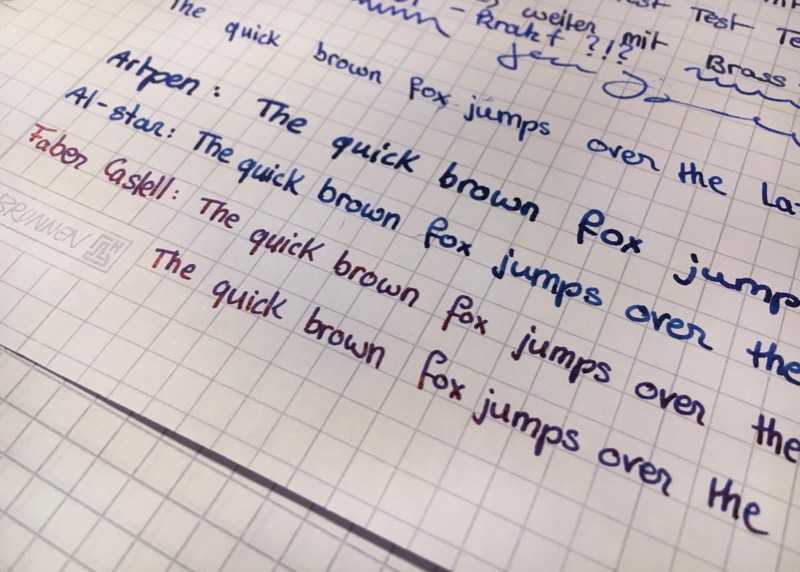 Test Test Te
weiter mit Brass
- Krakt ?!?
The quick brown fox jumps over the La
Artpen: The quick brown fox jump
Al-star: The quick brown fox jumps over the
Faber Castell: The quick brown fox jumps over the
The quick brown fox jumps over the
BRUNNEN